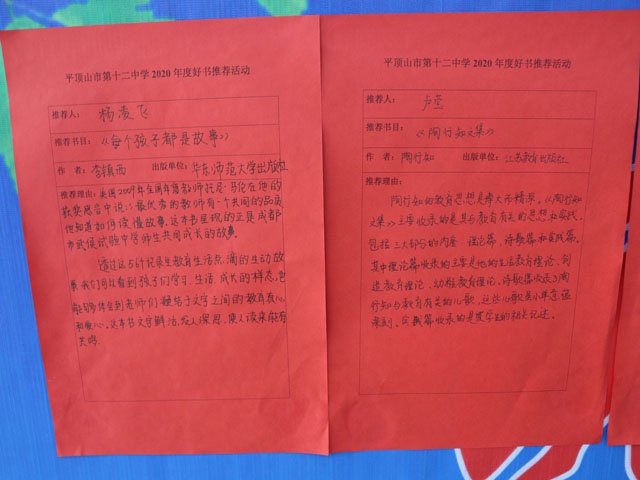 平顶山市第十二中学2020年度好书推荐活动
推荐人： 杨凌飞
推荐书目：《每个孩子都是故事》
作 者：李镇西 出版单位：华东师范大学出版社
推荐理由：美国2009年全国年度教师托尼·马伦在他的
获奖感言中说：最优秀的教师有一个共同的品质
他知道如何读懂故事。这本书呈现的正是成都
市武侯试验中学师生共同成长的故事。
透过这51个记录生教育生活点滴的生动故
事我们可以看到孩子们学习、生活、成长的样态，也
能够体会到老师们 于文字之间的教育真心
和童心。这本书文字鲜活，发人深思，读来能有
共鸣
平顶山市第十二中学2020年度好书推荐活动
推荐人： 卢莹
推荐书目： 《陶行知文集》
作 者：陶行知 出版单位：江苏教育出版社
推荐理由：
陶行知的教育思想是博大而精深，《陶行知
文集》主要收录的是其与教育有关的思想和实践，
包括三大部分的内容：理论篇、诗歌篇和实践篇。
其中理论篇收录的主要是他的生活教育理论、创
造教育理论、幼稚教育理论，诗歌篇收录了陶
行知与教育有关的儿歌，这些儿歌虽小寓意
深刻，实践篇收录的是其学生的相关记述。